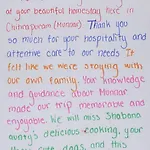 at your beautiful homestay here in
Chithirapuram (Munnar). Thank you
so much for your hospitality and
attentive care to our needs. It
felt like we were staying with
our own family. Your knowledge
and guidance about Munnar
made our trip memorable and
enjoyable. We will miss Shobana
aunty's delicious cooking, your
cute dogs, and this